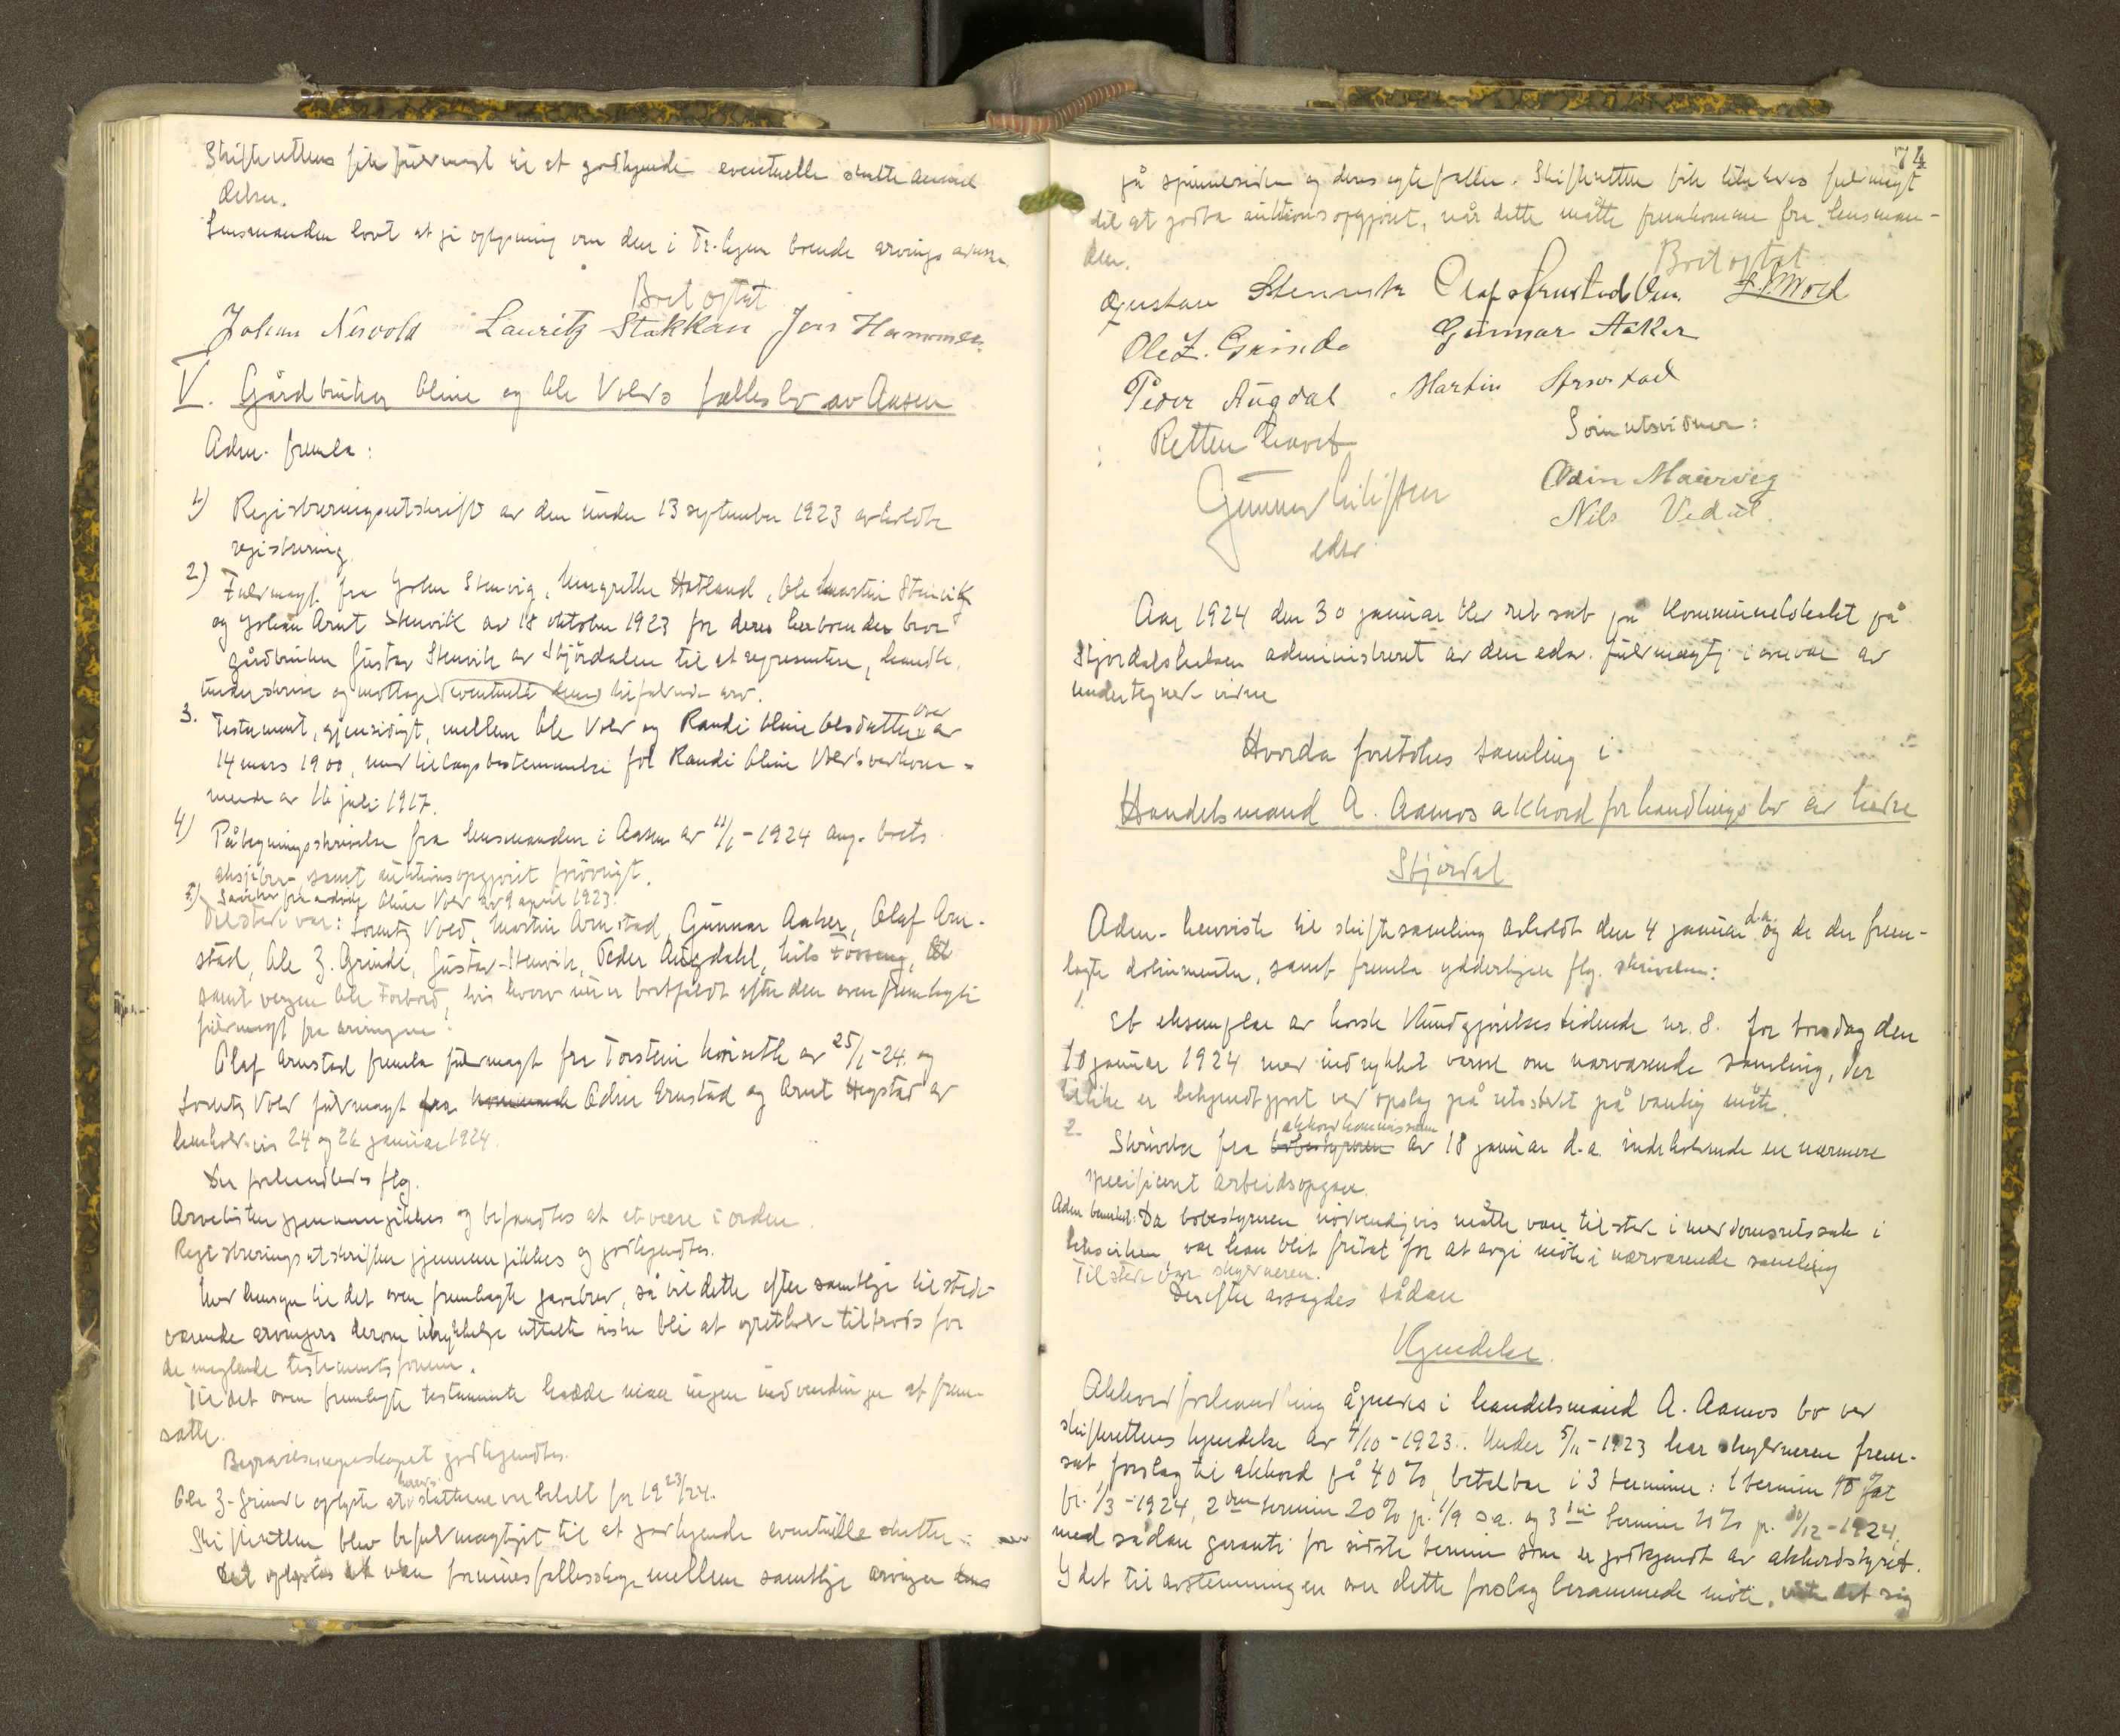 Skifterettens fik fuldmagt til at godkjende eventuelle skatteanmel
delser.
Lensmanden lovt at gi oplysning om den i Tr.hjem boende arvings adresse
Boet optat
Johan Nesvold Lauritz Stokkan Jon Hammer
V. Gårdbruker Oline og Ole Volds fællesbo av Aasen
Adm. fremla:
1) Registreringsutskrift av den under 13 september 1923 avholdte
registrering.
2) Fuldmagt fra Johan Stenvig, Margrethe Hotland, Ole Martin Stenvik
og Johan Arnt Stenvik av 18 oktober 1923 for deres herboende bror
gårdbruker Gustav Stenvik av Stjørdalen til at representere, handle,
underskrive og mottage eventuelt dem tilfaldende arv.
3. Testament, gjensidigt, mellem Ole Vold og Randi Oline Olsdatter Vold av
14 mars 1900, med tillægsbestemmelse for Randi Oline Vold's vedkom-
mende av 16 juli 1917.
4) Påtegningsskrivelse fra lensmanden i Aasen av 11/1-1924 ang. boets
aksjebrev samt auktionsopgjøret forøvrigt.
5) Gavebrev fra avdøde Oline Vold av 9 april 1923.
Tilstede var: Lorentz Vold, Martin Arnstad, Gunnar Aaker, Olaf Arn-
stad, Ole Z. Grinde, Gustav Stenvik, Peder Augdahl, Nils
samt vergen Ole Forbord, hvis hverv nu er bortfaldt efter den oven fremlagte
fuldmagt fra arvingene.
Olaf Arnstad fremla fuldmagt fra Torstein av 25/1-24 og
Lorentz Vold fuldmagt fra Odin Ernstad og Arnt Hegstad av
henholdsvis 24 og 26 januar 1924.
Der forhandledes flg.
Arvelisten gjennemgikkes og befandtes at være i orden.
Registreringsutskriften gjennemgikkes og godkjendtes.
Med hensyn til det oven fremlagte gavebrev, så vil dette efter samtlige tilstede-
værende arvingers derom uttrykkelige uttalte ønske bli at opretholde tiltrods for
de manglende testamentsformer.
Til det oven fremlagte testamente hadde ingen indvendinger at frem-
sætte.
Begravelsesregnskapet godkjendtes.
Ole Z. Grinde oplyste at herreds skattene var betalt for 1923/24.
Skifteretten blev befuldmægtiget til at godkjende eventuelle skatter
Det oplystes at være formuesfællesskap mellem samtlige arvinger
74
på spinnesiden og deres egtefæller. Skifteretten fik likeledes fuldmagt
til at godta auktionsopgjøret, når dette måtte fremkomme fra lensman-
den.
Boet optat
Gustav Stenvik Olaf Arnstad L. Vold
Ole Z. Grinde Gunnar Aaker
Peder Augdal Martin Arnstad
Retten hævet Som retsvidner:
Gunnar Odin Maurvig
edsv. Nils Vedul
Aar 1924 den 30 januar blev ret sat på kommunelokalet på
Stjørdalshalsen administreret av den edsv. fuldmægtig i overvær av
undertegnede vidner
Hvorda foretokes samling i
Handelsmand A. Aamos akkordforhandlingsbo av Nedre
Stjørdal
Adm. henviste til skiftesamling avholdt den 4 januar d.a. og de der frem-
lagte dokumenter, samt fremla ydderligere flg. skrivelser:
1.
Et eksemplar av Norsk Kundgjørelsestidende nr. 8. for torsdag den
10 januar 1924 med indrykket varsel om nærværende samling, der
tillike er bekjendtgjort ved opslag på retsstedet på vanlig måte.
2.
Skrivelse fra bobestyreren akkordkommissæren av 18 januar d.a. indeholdende en nærmere
specificert arbeidsopgave.
Adm bemerket: Da bobestyreren nødvendigvis måtte være tilstede i meddomsretssak i
Leksviken var han blit fritat for at avgi møte i nærværende samling
Tilstede var skyldneren.
Derefter avsagdes sådan
Kjendelse.
Akkordforhandling åpnedes i handelsmand A. Aamos bo ved
skifterettens kjendelse av 4/10-1923. Under 5/11-1923 har skyldneren frem-
sat forslag til akkord på 40 %, betalbar i 3 terminer: 1 termin 10 pct
pr. 1/3-1924, 2den termin 20% pr. 1/9 s.a. og 3die termin 10% pr. 30/12-1924,
med sådan garanti for sidste termin som er godkjendt av akkordstyret.
I det til avstemningen over dette forslag berammede møte, viste det sig